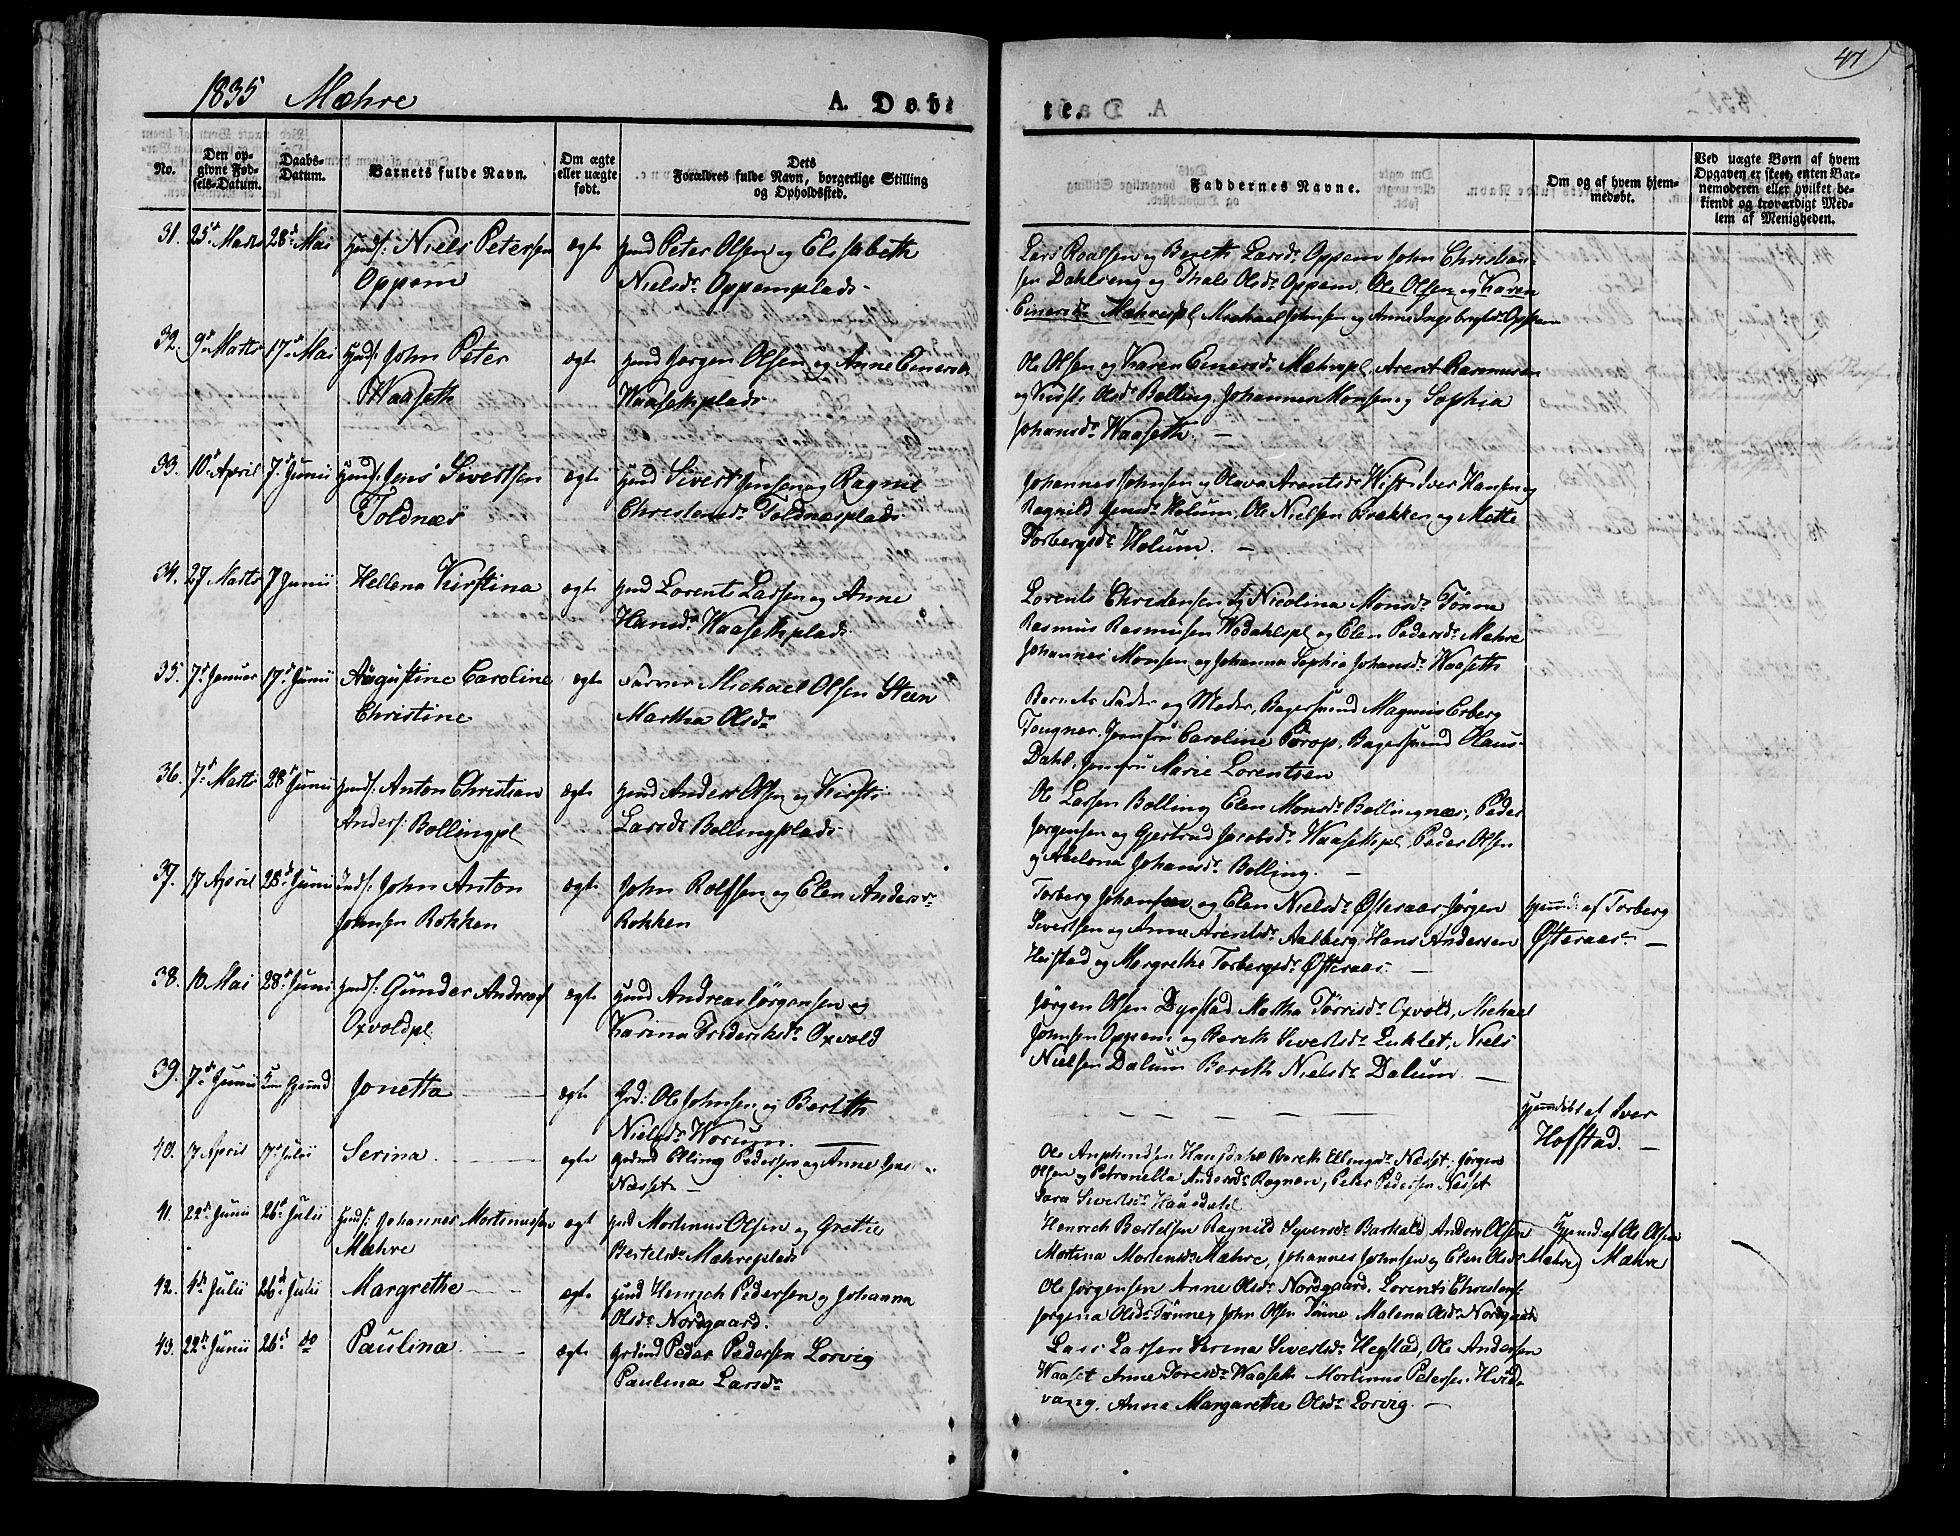 1835 Mæhre
A. Døbte.
47
No.
Den opgivne Fødsels-Datum.
Daabs-Datum.
Barnets fulde Navn.
Om ægte eller uægte født.
Dets Forældres fulde Navn, borgerlige Stilling og Opholdsted.
Faddernes Navne.
Om og af hvem hjemmedøbt.
Ved uægte Børn af hvem Opgaven er skeet, enten Barnemoderen eller hvilket bekjendt og troværdigt Medlem af Menigheden.
31. 25d Marts 28d Mai Niels Petersen ægte Peter Olsen og Elisabeth
Oppem Nielsdr Oppemplads
Lars Roalsen og Bereth Larsdr Oppem John Christian-
sen Dahlseng og Olsdr Oppem. Ole Olsen og Karen
Einersdr Mæhrespl. Michael Johnsen og Anne Ingebrigtsdr Oppem
32. 9d Marts 17d Mai John Peter ægte Jørgen Olsen og Anne Einersdr
Waaseth Waasethplads
Ole Olsen og Karen Einersdr Mæhrepl. Arent Rasmusen
og Olsdr Bolling. Johannes Monsen og Sophia
Johansdr Waaseth. —
33. 10d April 7d Junii Jens Sivertsen ægte Sivert Jensen og Ragne
Toldnæs Christensdr Toldnæsplads
Johannes Johnsen og Olava Arentsdr Iver Hansen og
Ragnild Jensdr Holum, Ole Nielsen Brækken og Mette
Torbergsdr Holum. —
34. 27 Marts 7 Junii Hellena Kirstina ægte Lorents Larsen og Anne
Hansdr Waasethplads
Lorents Christensen og Nicolina Monsdr Tønne
Rasmus Rasmusen Wodahlspl og Elen Pedersdr Mæhre
Johannes Monsen og Johanna Sophia Johansdr Waaseth
35. 7d Januar 17d Junii Augustine Caroline ægte Farver Michael Olsen Steen
Christine Martha Olsdr
Barnets Fader og Moder, Bagersvend Magnus Erberg
Tougner. Jomfru Caroline Borop, Bagersvend Olaus
Dahl, Jomfru Marie Lorentsen
36. 7d Marts 28d Junii Anton Christian ægte Anders Olsen og Kirsti
Anders: Bollingpl Larsdr Bollingplads
Ole Larsen Bolling Elen Monsdr Bollingnæs, Peder
Jørgensen og Gjertrud Jacobsdr Waasethpl. Peder Olsen
og Abelona Johansdr Bolling. —
37. 17 April 28d Junii John Anton ægte John Rolfsen og Elen Andersdr
Johnsen Rokken Rokken
Torberg Johansen og Elen Nielsdr Østeraas Jørgen
Sivertsen og Anne Arentsdr Aalberg, Hans Andersen
Heistad og Margrethe Torbergsdr Østeraas. —
Hjemd: af Torberg
Østeraas —
38. 10 Mai 28d Junii Gunder Andreas ægte Andreas Jørgensen og
Oxvoldpl Karina Frideriksdr Oxvold
Jørgen Olsen Dyrstad Martha Tørrisdr Oxvold, Michael
Johnsen Oppem, og Bereth Sivertsdr Luklet, Niels
Nielsen Dalum Bereth Nielsdr Dalum. —
39. 7d Junii Jonetta ægte Ole Johnsen og Bereth
Nielsdr Worum. —
Hjemdøbt af Iver
Hofstad. —
40. 17 April 17d Julii Serina ægte Elling Pedersen og Anne
Næsset —
Ole Amphindsen Haugdahl Bereth Ellingsdr Næsset, Jørgen
Olsen og Petronella Andersdr Ragnem, Peter Pedersen Næsset
Sara Sivertsdr Haugdahl
41. 22d Junii 26d Julii Johannes Mortinussen ægte Mortinus Olsen og Grethe
Mæhre Bertelsdr Mæhreplads
Henrich Bertelsen Ragnild Syversdr Barkald, Anders Olsen
Mortina Mortensdr Mæhre, Johannes Johnsen og Elen Olsdr Mæhre
Hjemd: af Ole Olsen
Mæhre
42. 4d Julii 26d Julii Margrethe ægte Henrich Pedersen og Johanna
Olsdr Nordgaard.
Ole Jørgensen Anne Olsdr Nordgaard. Lorents Christens:
Jørgina Olsdr Tønne, John Olsen Tønne Malena Olsdr Nordgaard
43. 22d Junii 26d do Paulina ægte Peder Pedersen Lorvig
Paulina Larsdr
Lars Larsen Serina Sivertsdr Hegstad, Ole Andersen
Waaset Anne Toresdr Waaseth Mortinus Petersen
vang. Anna Margarethe Olsdr Lorvig. —